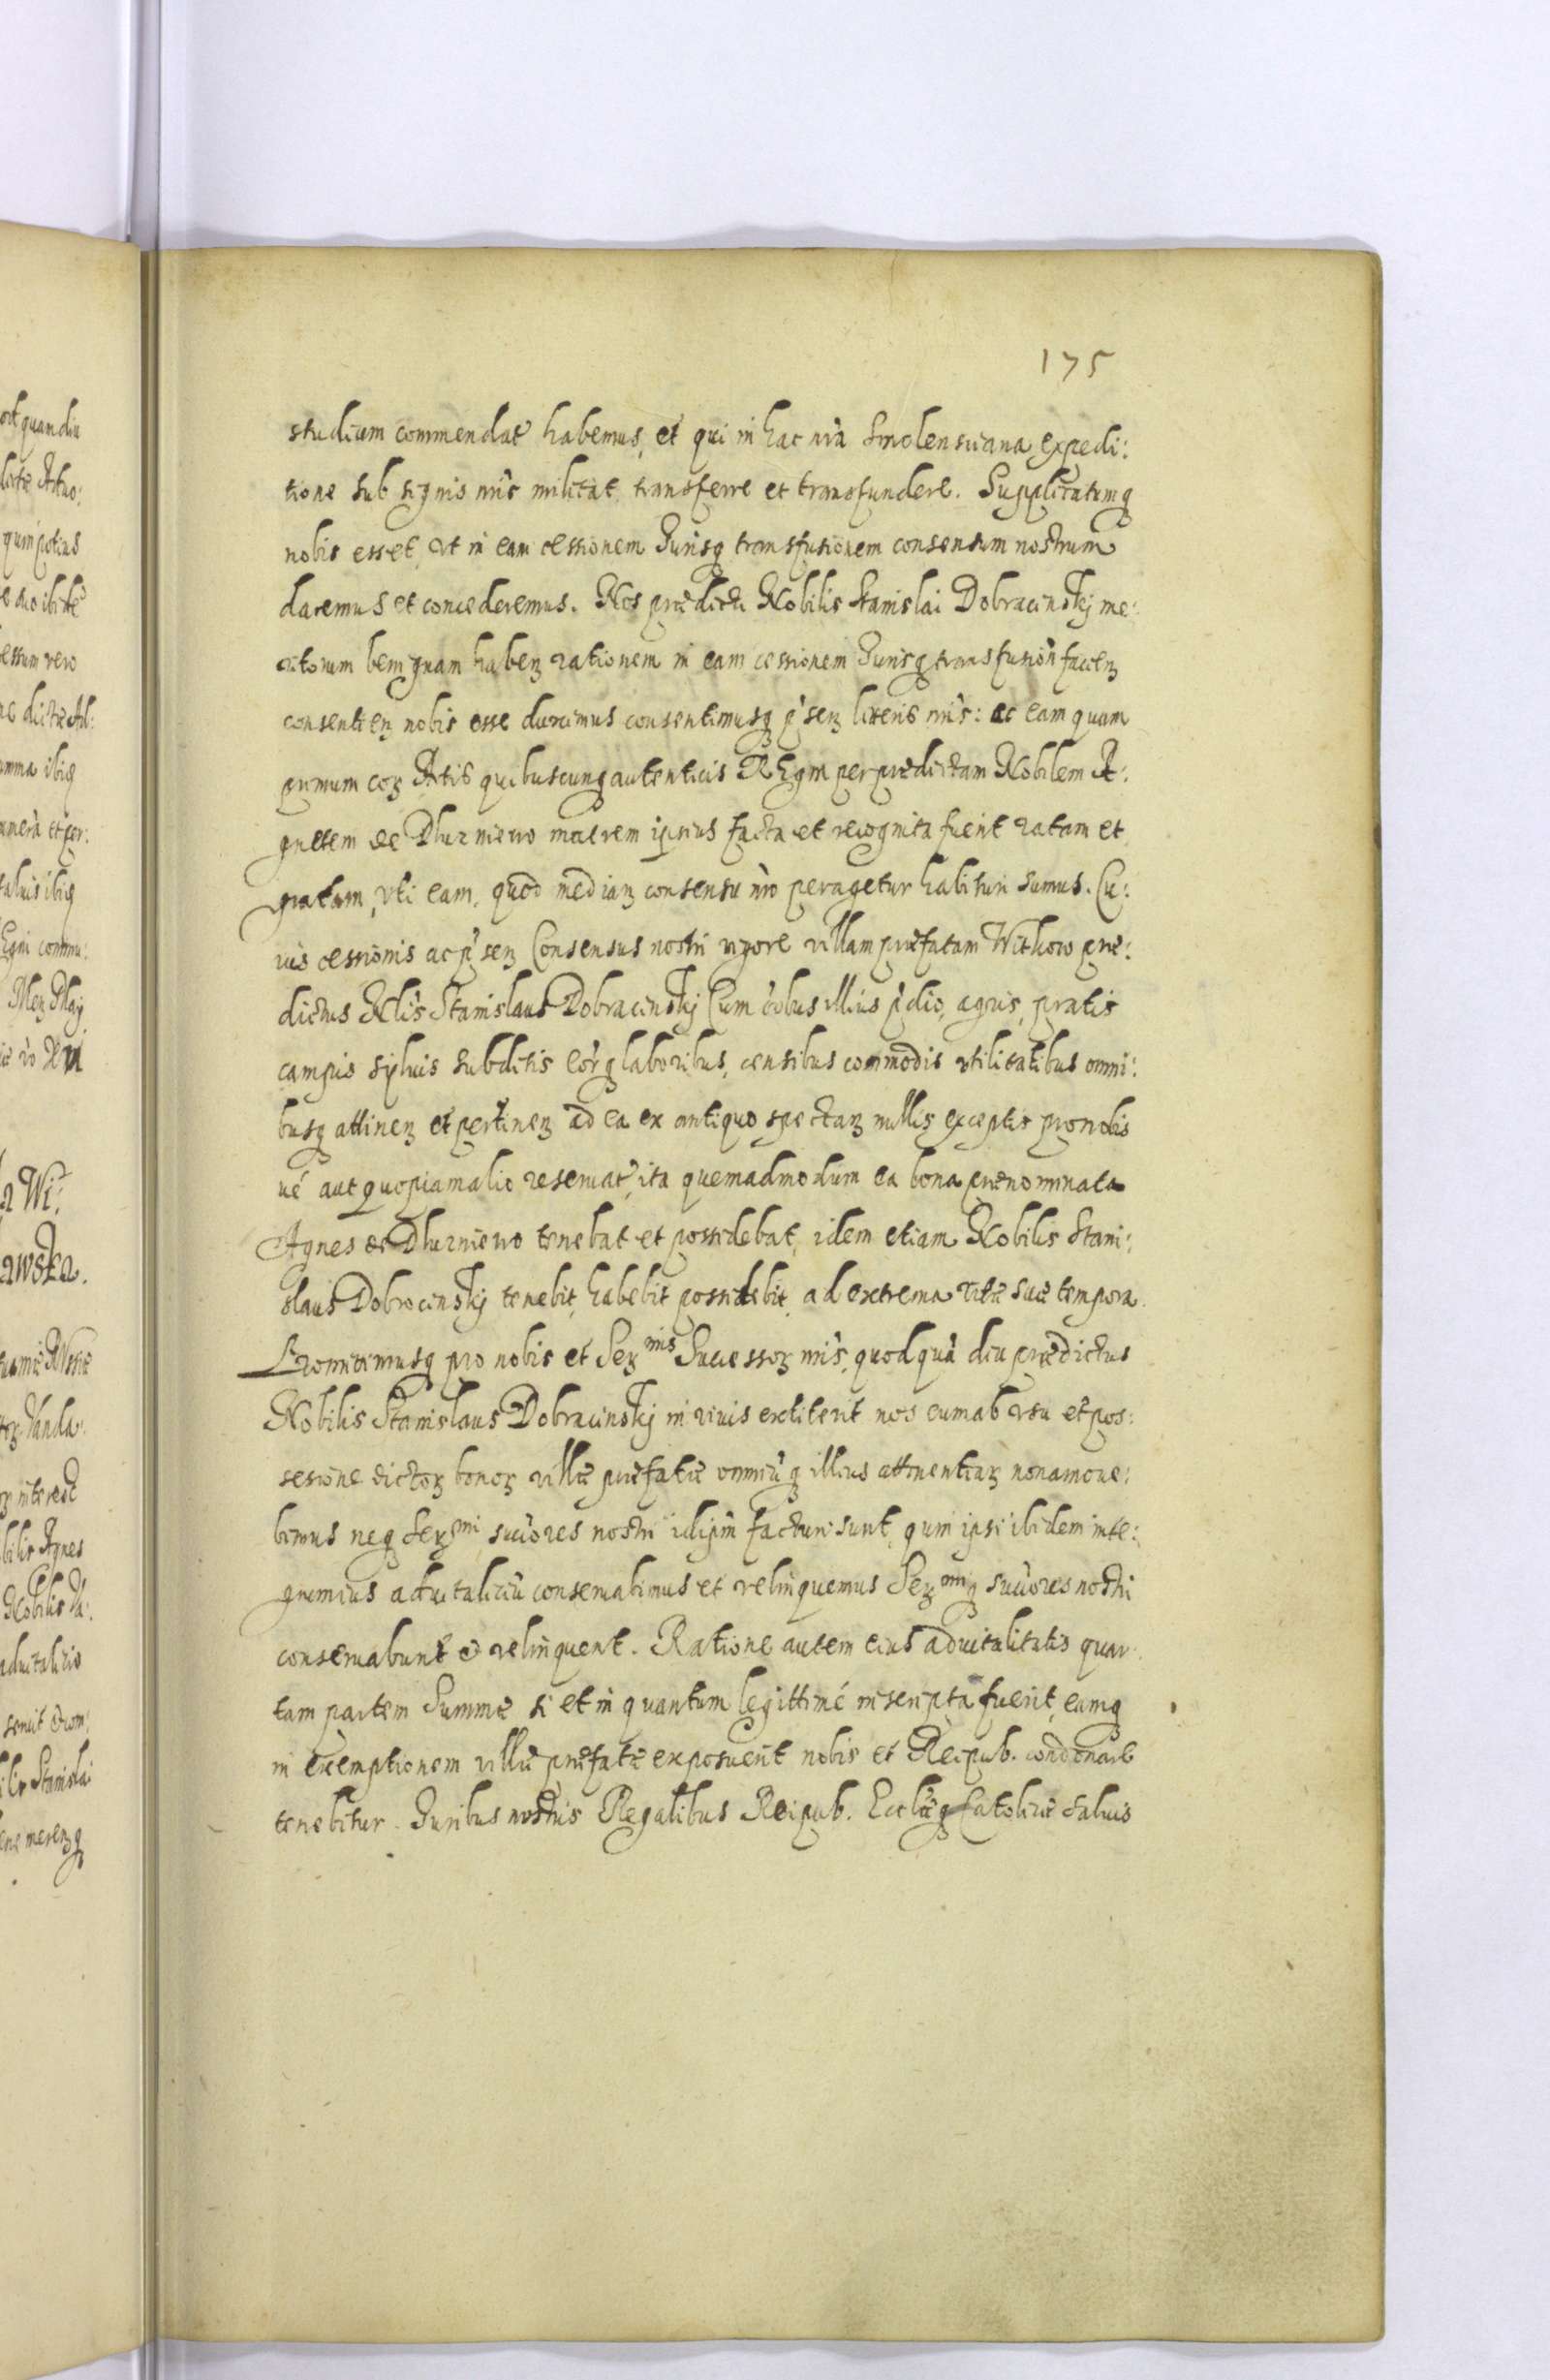 175
studium commendat habemus, et qui in hac nrà Smolensciana expedi:
tione sub signis nris militat, transferre et transfundere. Supplicatumq
nobis esset, vt in eam cessionem Jurisq transfusionem consensum nostrum
daremus et concederemus. Nos prædicti Nobilis Stanislai Dobracinskj me:
ritorum benignam habenz rationem in eam cessionem Jurisq transfusion facienz
consentienz nobis esse duximus consentimusq p'senz literis nris: ac eam quam
primum coz Actis quibuscunq autenticis REgni per prædictam Nobilem A:
gnetem de Dlurniewo matrem ipsius facta et recognita fuerit ratam et
gratam, vti eam, quod medianz consensu nro peragetur habituri sumus. Cu:
ius cessionis ac p'senz Consensus nostri vigore villam præfatam Witkow præ:
dictus Nlis Stanislaus Dobracinskj Cum oìbus illius p'dio, agris, pratis
campis syluis subditis eorq laboribus, censibus commodis vtilitatibus omni:
busq attinenz et pertinenz ad ea ex antiquo spectanz nullis exceptis pro nobis
ué aut quopiam alio reseruat, ita quemadmodum ea bona prænominata
Agnes de Dlurniewo tenebat et possidebat, idem etiam Nobilis Stani:
slaus Dobrocinskj tenebit, habebit possidebit, ad extrema vitæ suæ tempora
Promittimusq pro nobis et Serz mis Successorz nris, quod quà diu prædictus
Nobilis Stanislaus Dobracinskj in viuis extiterit nos eum ab vsu et pos:
sesione dictorz bonorz villæ præfatæ omniùq illius attinentiarz non amoue:
bimus neq Serz mi succ'ores nostri idipm facturi sunt, quin ipsi ibidem inte:
grum ius aduitaliciù conseruabimus et relinquemus Serz miq succ'ores nostri
conseruabunt & relinquent. Ratione autem eius aduitalitatis quar
tam partem Summæ si et in quantum legittimé inscripta fuerit, eamq
in exemptionem villæ præfatæ exposuerit nobis et Reipub. condonare
tenebitur. Juribus nostris Regalibus Reipub. Ecclæq Catolicæ saluis